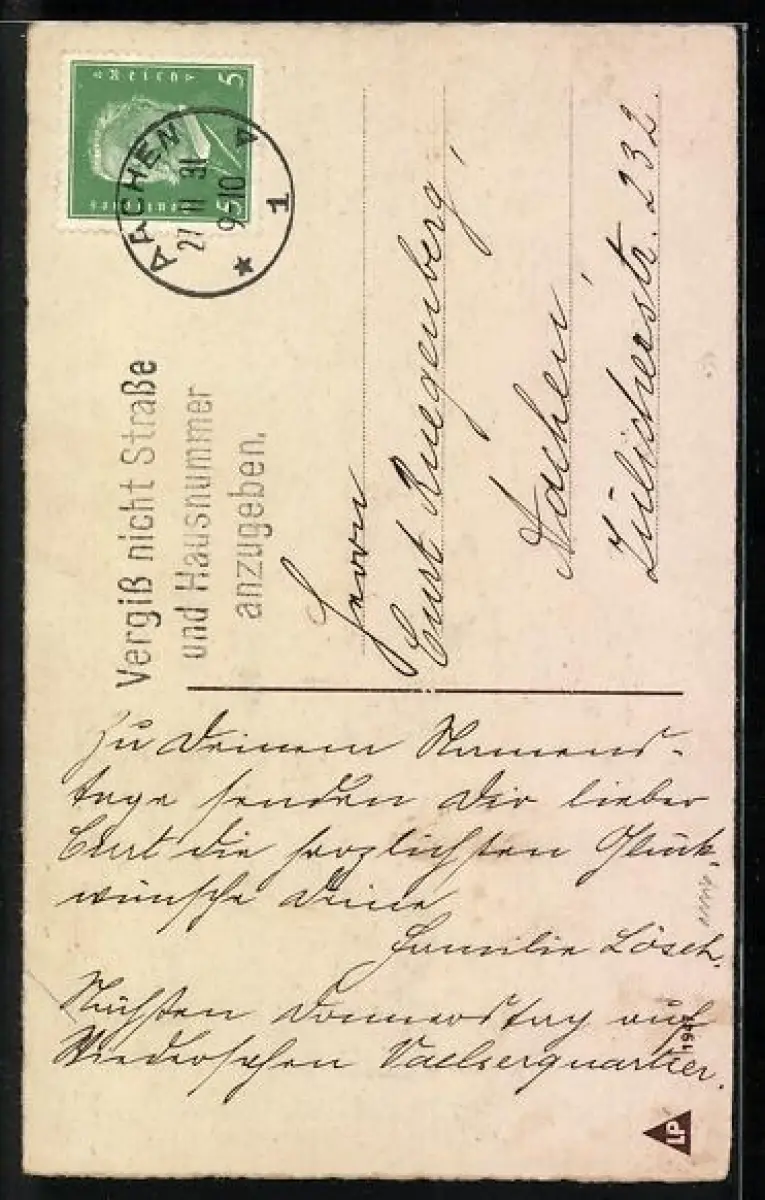 Deutsches
Reich
5
5
AACHEN
27 11 31
9-10
1
Vergiß nicht Straße
und Hausnummer
anzugeben.
Herrn
Curt Ruegenberg,
Aachen,
Jülicherstr. 232.
Zu Deinem Namens-
tage senden Dir lieber
Curt die herzlichsten Glück-
wünsche Deine
Familie Lösch.
Nächsten Donnerstag auf
Wiedersehen Vaelserquartier.
LP